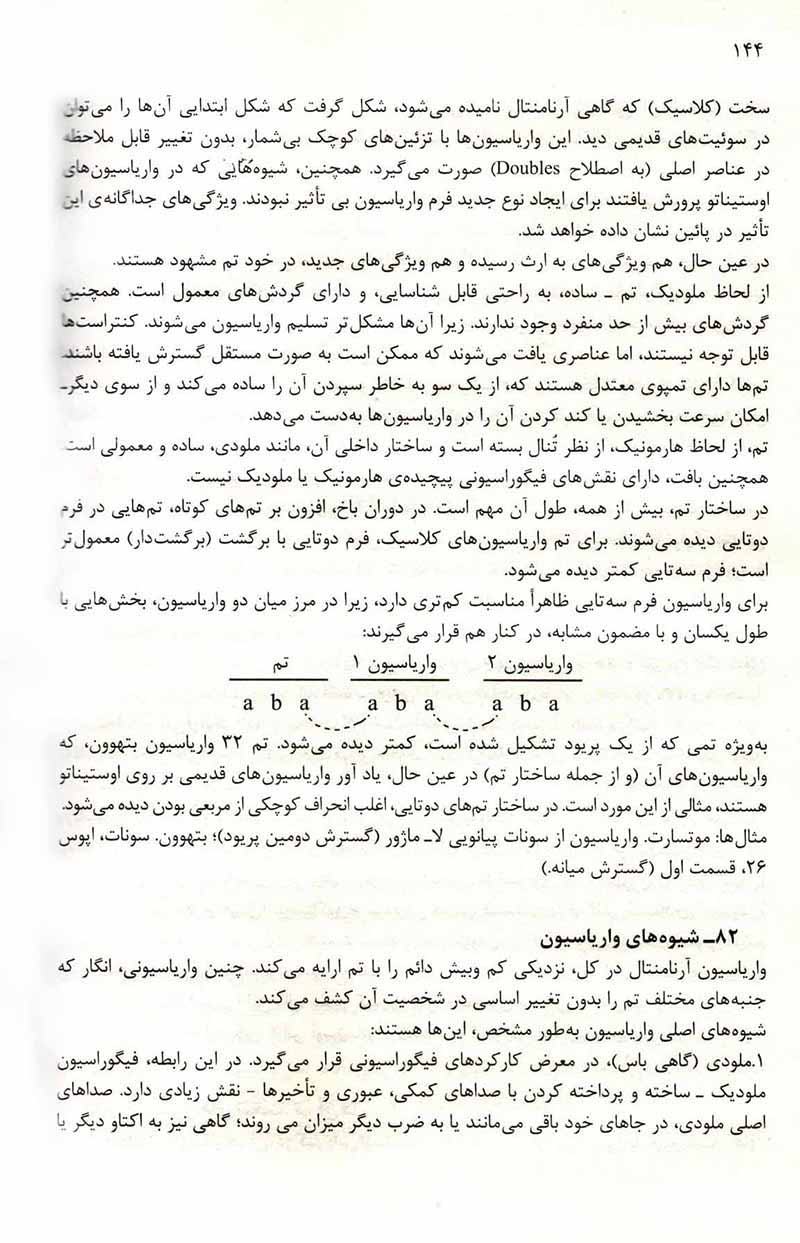 ۱۴۴
سخت (کلاسیک) که گاهی آرنامنتال نامیده می‌شود، شکل گرفت که شکل ابتدایی آن‌ها را می‌توان
در سوئیت‌های قدیمی دید. این واریاسیون‌ها با تزئین‌های کوچک بی‌شمار، بدون تغییر قابل ملاحظه
در عناصر اصلی (به اصطلاح Doubles) صورت می‌گیرد. همچنین، شیوه‌هایی که در واریاسیون‌های
اوستیناتو پرورش یافتند برای ایجاد نوع جدید فرم واریاسیون بی تأثیر نبودند. ویژگی‌های جداگانه‌ی این
تأثیر در پائین نشان داده خواهد شد.
در عین حال، هم ویژگی‌های به ارث رسیده و هم ویژگی‌های جدید، در خود تم مشهود هستند.
از لحاظ ملودیک، تم ـ ساده، به راحتی قابل شناسایی، و دارای گردش‌های معمول است. همچنین
گردش‌های بیش از حد منفرد وجود ندارند. زیرا آن‌ها مشکل‌تر تسلیم واریاسیون می‌شوند. کنتراست‌ها
قابل توجه نیستند، اما عناصری یافت می‌شوند که ممکن است به صورت مستقل گسترش یافته باشند.
تم‌ها دارای تمپوی معتدل هستند که، از یک سو به خاطر سپردن آن را ساده می‌کند و از سوی دیگرـ
امکان سرعت بخشیدن یا کند کردن آن را در واریاسیون‌ها به‌دست می‌دهد.
تم، از لحاظ هارمونیک، از نظر تُنال بسته است و ساختار داخلی آن، مانند ملودی، ساده و معمولی است.
همچنین بافت، دارای نقش‌های فیگوراسیونی پیچیده‌ی هارمونیک یا ملودیک نیست.
در ساختار تم، بیش از همه، طول آن مهم است. در دوران باخ، افزون بر تم‌های کوتاه، تم‌هایی در فرم
دوتایی دیده می‌شوند. برای تم واریاسیون‌های کلاسیک، فرم دوتایی با برگشت (برگشت‌دار) معمول‌تر
است؛ فرم سه‌تایی کمتر دیده می‌شود.
برای واریاسیون فرم سه‌تایی ظاهراً مناسبت کم‌تری دارد، زیرا در مرز میان دو واریاسیون، بخش‌هایی با
طول یکسان و با مضمون مشابه، در کنار هم قرار می‌گیرند:
تم واریاسیون ۱ واریاسیون ۲
a b a a b a a b a
به‌ویژه تمی که از یک پریود تشکیل شده است، کمتر دیده می‌شود. تم ۳۲ واریاسیون بتهوون، که
واریاسیون‌های آن (و از جمله ساختار تم) در عین حال، یاد آور واریاسیون‌های قدیمی بر روی اوستیناتو
هستند، مثالی از این مورد است. در ساختار تم‌های دوتایی، اغلب انحراف کوچکی از مربعی بودن دیده می‌شود.
مثال‌ها: موتسارت. واریاسیون از سونات پیانویی لاـ ماژور (گسترش دومین پریود)؛ بتهوون. سونات، اپوس
۲۶، قسمت اول (گسترش میانه.)
۸۲ـ شیوه‌های واریاسیون
واریاسیون آرنامنتال در کل، نزدیکی کم وبیش دائم را با تم ارایه می‌کند. چنین واریاسیونی، انگار که
جنبه‌های مختلف تم را بدون تغییر اساسی در شخصیت آن کشف می‌کند.
شیوه‌های اصلی واریاسیون به‌طور مشخص، این‌ها هستند:
۱.ملودی (گاهی باس)، در معرض کارکردهای فیگوراسیونی قرار می‌گیرد. در این رابطه، فیگوراسیون
ملودیک ـ ساخته و پرداخته کردن با صداهای کمکی، عبوری و تأخیرها - نقش زیادی دارد. صداهای
اصلی ملودی، در جاهای خود باقی می‌مانند یا به ضرب دیگر میزان می روند؛ گاهی نیز به اکتاو دیگر یا